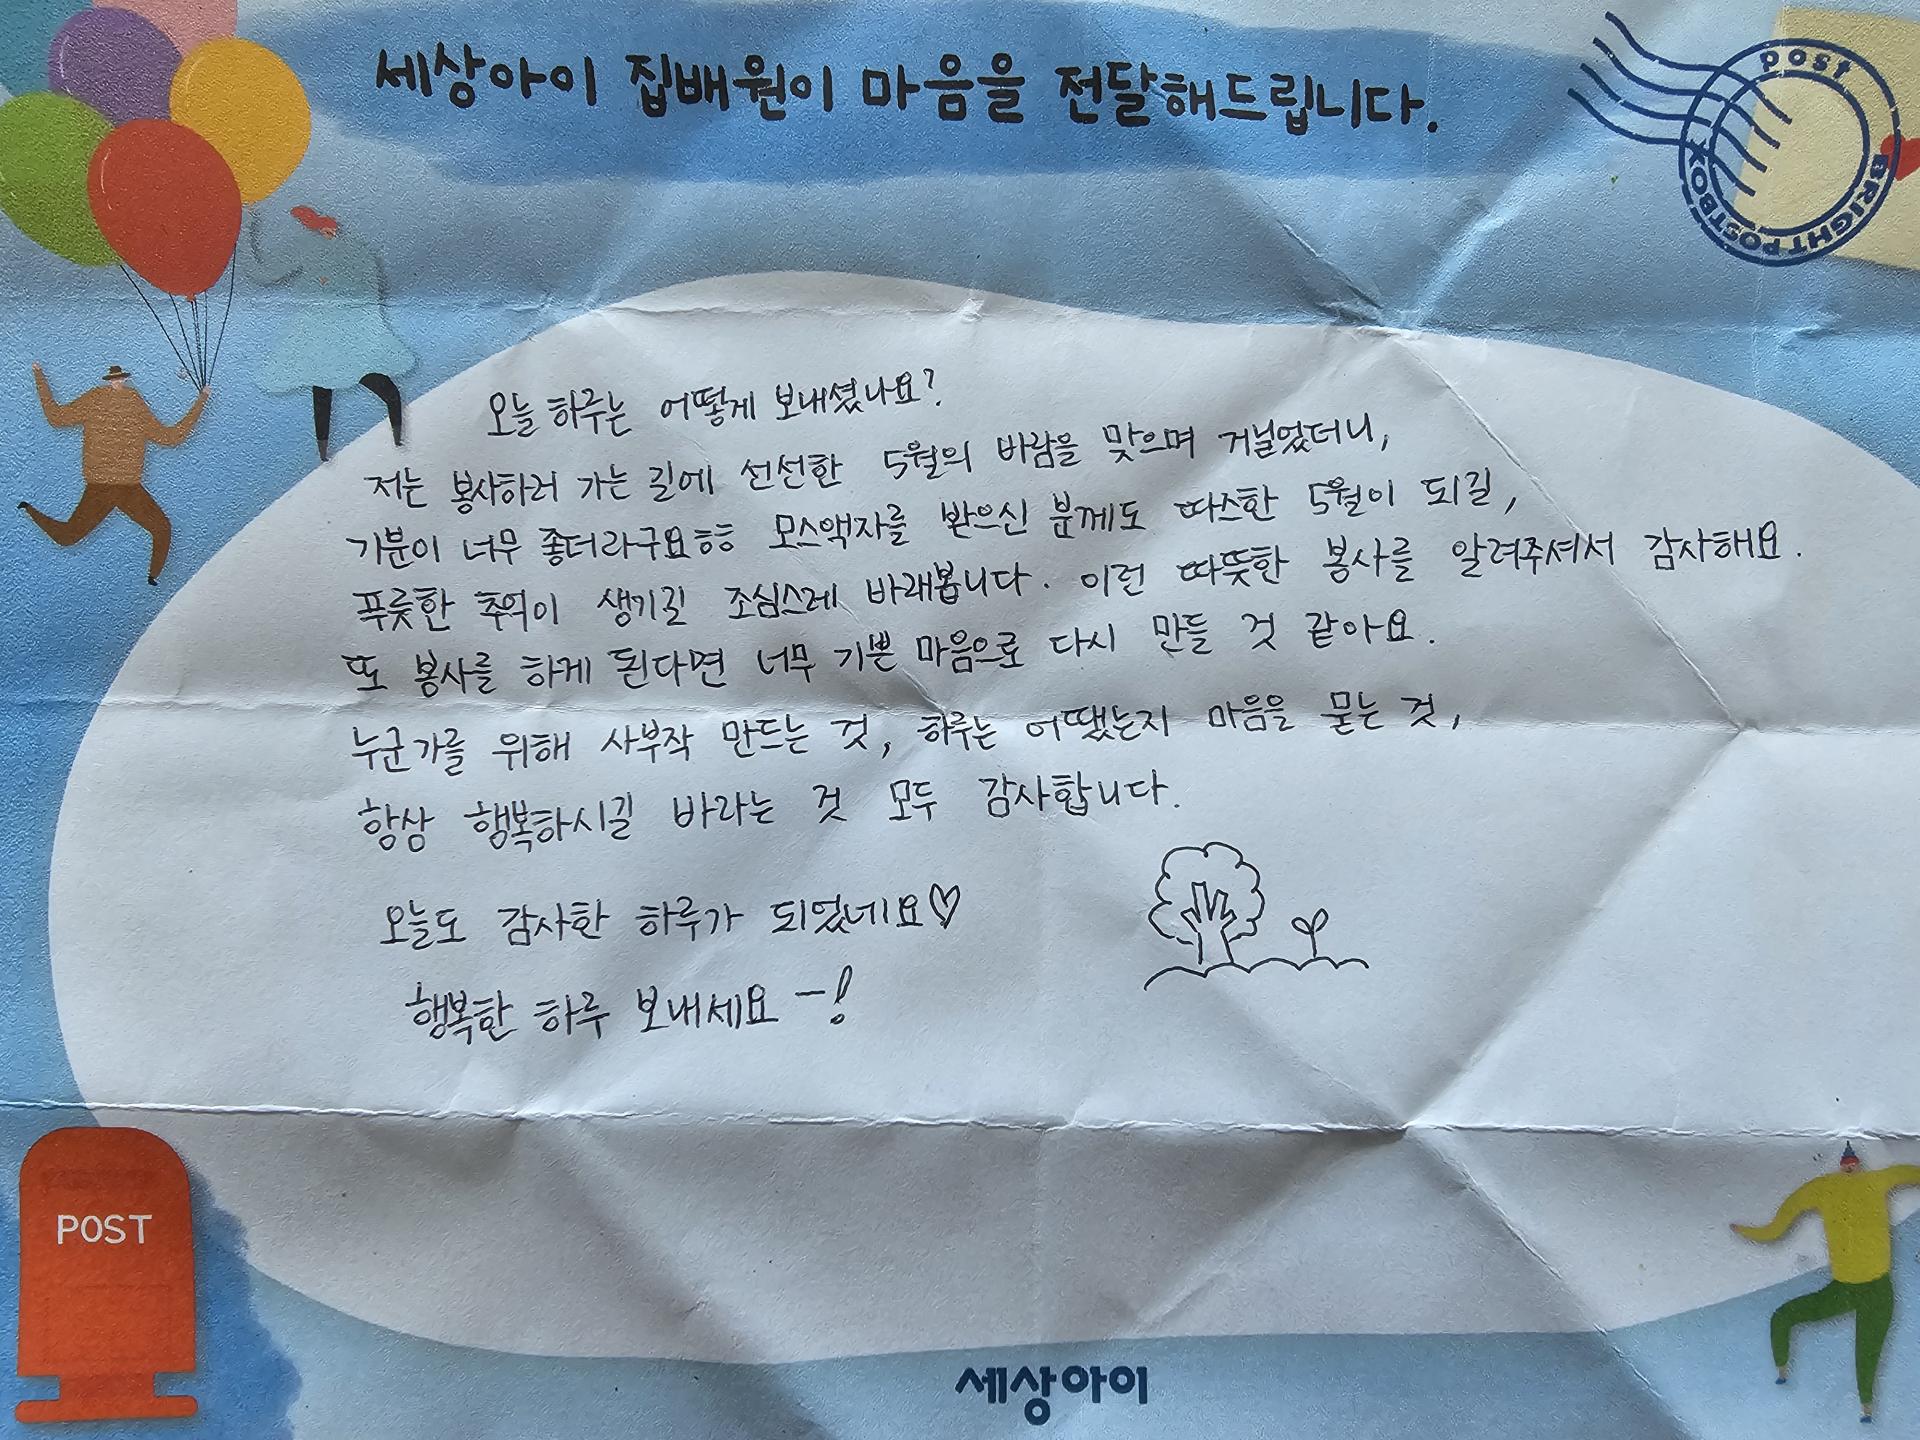 세상아이 집배원이 마음을 전달해드립니다.
post
BRIGHT POSTBOX
오늘 하루는 어떻게 보내셨나요?
저는 봉사하러 가는 길에 선선한 5월의 바람을 맞으며 거닐었더니,
기분이 너무 좋더라구요ㅎㅎ 모스액자를 받으신 분께도 따스한 5월이 되길,
푸릇한 추억이 생기길 조심스레 바래봅니다. 이런 따뜻한 봉사를 알려주셔서 감사해요.
또 봉사를 하게 된다면 너무 기쁜 마음으로 다시 만들 것 같아요.
누군가를 위해 사부작 만드는 것, 하루는 어땠는지 마음을 묻는 것,
항상 행복하시길 바라는 것 모두 감사합니다.
오늘도 감사한 하루가 되었네요♡
행복한 하루 보내세요 ー!
POST
세상아이